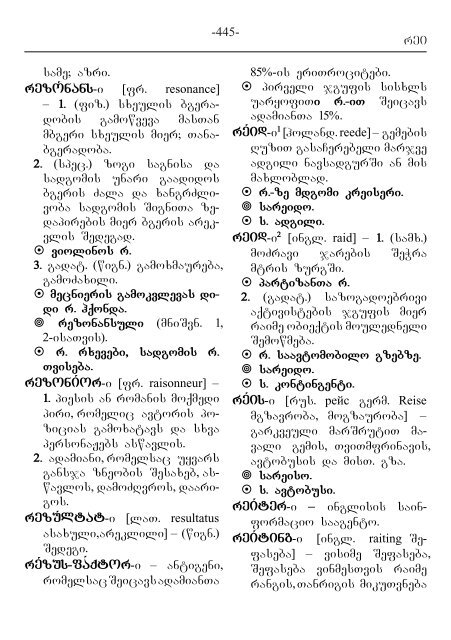 -445-
რეი
სამე; აზრი.
რეზონანს-ი [ფრ. resonance]
– 1. (ფიზ.) სხეულის ბგერა-
დობის გამოწვევა მასთან
მბგერი სხეულის მიერ; თანა-
ბგერადობა.
2. (სპეც.) ზოგი საგნისა და
სადგომის უნარი გაადიდოს
ბგერის ძალა და ხანგრძლი-
ვობა სადგომის შიგნითა ზე-
დაპირების მიერ ბგერის არეკ-
ვლის შედეგად.
⊙ ვიოლინოს რ.
3. გადატ. (წიგნ.) გამოხმაურება,
გამოძახილი.
⊙ მეცნიერის გამოკვლევას დი-
დი რ. ჰქონდა.
◎ რეზონანსული (მნიშვნ. 1,
2-ისათვის).
⊙ რ. რხევები, სადგომის რ.
თვისება.
რეზონიორ-ი [ფრ. raisonneur] –
1. პიესის ან რომანის მოქმედი
პირი, რომელიც ავტორის პო-
ზიციას გამოხატავს და სხვა
პერსონაჟებს ასწავლის.
2. ადამიანი, რომელსაც უყვარს
განსჯა ზნეობის შესახებ, ას-
წავლოს, დამოძღვროს, დაარი-
გოს.
რეზულტატ-ი [ლათ. resultatus
ასახული,არეკლილი] – (წიგნ.)
შედეგი.
რეზუს-ფაქტორ-ი – ანტიგენი,
რომელსაც შეიცავს ადამიანთა
85%-ის ერითროციტები.
⊙ პირველი ჯგუფის სისხლს
უარყოფითი რ.-ით შეიცავს
ადამიანთა 15%.
რეიდ-ი¹ [ჰოლანდ. reede] – გემების
ღუზით გასაჩერებელი მარჯვე
ადგილი ნავსადგურში ან მის
მახლობლად.
⊙ რ.-ზე მდგომი კრეისერი.
◎ სარეიდო.
⊙ ს. ადგილი.
რეიდ-ი² [ინგლ. raid] – 1. (სამხ.)
მოძრავი ჯარების შეჭრა
მტრის ზურგში.
⊙ პარტიზანთა რ.
2. (გადატ.) საზოგადოებრივი
აქტივისტების ჯგუფის მიერ
რაიმე ობიექტის მოულედნელი
შემოწმება.
⊙ რ. საავტომობილო გზებზე.
◎ სარეიდო.
⊙ ს. კონტინგენტი.
რეის-ი [რუს. рейс გერმ. Reise
მგზავრობა, მოგზაურობა] –
გარკვეული მარშრუტით მა-
ვალი გემის, თვითმფრინავის,
ავტობუსის და მისთ. გზა.
◎ სარეისო.
⊙ ს. ავტობუსი.
რეიტერ-ი – ინგლისის საინ-
ფორმაციო სააგენტო.
რეიტინგ-ი [ინგლ. raiting შე-
ფასება] – ვისიმე შეფასება,
შეფასება ვინმესთვის რაიმე
რანგის,თანრიგის მიკუთვნება